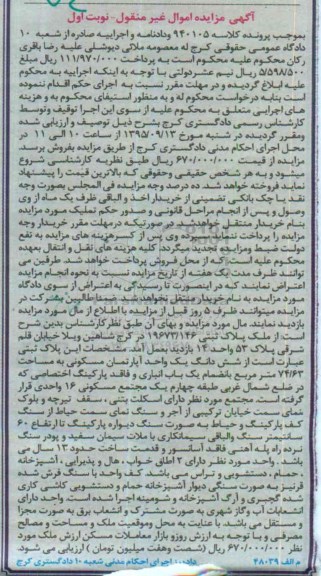 آگهی مزایده اموال غیر منقول- نوبت اول
بموجب پرونده کلاسه ۹۴۰۱۰۵ ودادنامه و اجراییه صادره از شعبه ۱۰
دادگاه عمومی حقوقی کرج له معصومه ملائی دیوشلی علیه رضا باقری
رکان محکوم علیه محکوم است به پرداخت ۱۱۱/۹۷۰/۰۰۰ ریال مبلغ
۵/۵۹۸/۵۰۰ ریال نیم عشردولتی با توجه به اینکه اجراییه به محکوم
علیه ابلاغ گردیده و در مهلت مقرر نسبت به اجرای حکم اقدام ننموده
است بنابه درخواست محکوم له و به منظور استیفای محکوم به و هزینه
های اجرایی متعلق به محکوم علیه از سوی این اجرا توقیف وتوسط
کارشناس رسمی دادگستری کرج بشرح ذیل توصیف و ارزیابی شده
ومقرر گردیده در شنبه مورخ ۱۳۹۵/۰۹/۱۳ از ساعت ۱۰ الی ۱۱ در
محل اجرای احکام مدنی دادگستری کرج از طریق مزایده بفروش برسد.
مزایده از قیمت ۶۷۰/۰۰۰/۰۰۰ ریال طبق نظریه کارشناسی شروع
میشود و به هر شخص حقیقی وحقوقی که بالاترین قیمت را پیشنهاد
نماید فروخته خواهد شد. ده درصد وجه مزایده فی المجلس بصورت وجه
نقد یا چک بانکی تضمینی از خریدار اخذ و الباقی ظرف یک ماه از وی
وصول و پس از انجام مراحل قانونی و صدور حکم تملیک مورد مزایده
بنام خریدار منتقل خواهدشد. در صورتیکه درمهلت مقرر خریدار وجه
مزایده را پرداخت ننماید سپرده وی پس از کسرهزینه های مزایده به نفع
دولت ضبط ومزایده تجدید میگردد. کلیه هزینه های نقل و انتقال بعهده
محکوم علیه است که از محل فروش پرداخت خواهد شد. طرفین می
توانند ظرف مدت یک هفته از تاریخ مزایده نسبت به نحوه انجام مزایده
اعتراض نمایند که در اینصورت تا رسیدگی به اعتراض از سوی دادگاه
مورد مزایده به نام خریدار منتقل نخواهد شد. ضمنا طالبین بشرکت در
مزایده میتوانند ظرف ۵ روز قبل از مزایده با اطلاع از مال مورد مزایده
بازدید نمایند. مال مورد مزایده و بهای آن طبق نظر کارشناس بدین شرح
است: از ملک پلاک ثبتی ۱۹۶۷۳/۱۴۶ در کرج شاهین ویلا خیابان قلم
شرقی پلاک ۵۳ واحد ۱۴ بازدید بعمل آمد. مشخصات این پلاک ثبتی
عبارت است از شش دانگ یک واحد آپارتمان مسکونی به مساحت
۷۴/۶۳ متر مربع بانضمام یک باب انباری و فاقد پارکینگ اختصاصی که
در ضلع شمال غربی طبقه چهارم یک مجتمع مسکونی ۱۶ واحدی قرار
گرفته است. مجتمع مورد نظر دارای اسکلت بتنی ، سقف تیرچه و بلوک
نمای سمت خیابان ترکیبی از آجر و سنگ نمای سمت حیاط از سنگ
کف پارکینگ و حیاط به صورت سنگ دیواره پارکینگ تا ارتفاع ۶۰
سانتیمتر سنگ والباقی سیمانکاری با ملات سیمان سفید و پودر سنگ
نرده راه پله آهنی فاقد آسانسور و قدمت ساخت حدود ۱۳ سال می
باشد. واحد مورد نظر دارای ۲ اطاق خواب ، هال و پذیرایی ، آشپزخانه
، حمام ، دستشویی و تراس می باشد. کف واحد با سنگ فرش شده
قرنیز به صورت سنگی دیوار آشپزخانه حمام و دستشویی کاشی کاری
شده گچبری و آرک آشپزخانه و شومینه اجرا شده است. واحد دارای
انشعابات آب وگاز شهری به صورت مشترک و انشعاب برق به صورت مجزا
و مستقل می باشد. با عنایت به محل وموقعیت ملک و مساحت و مصالح
مصرفی و با توجه به ارزش روزو بازار معاملات مسکن ارزش ملک مورد
نظر ۶۷۰/۰۰۰/۰۰۰ ریال (شصت وهفت میلیون تومان ) ارزیابی می شود.
م الف ۴۸۰۳۹ دادورز اجرای احکام مدنی شعبه ۱۰ دادگستری کرج